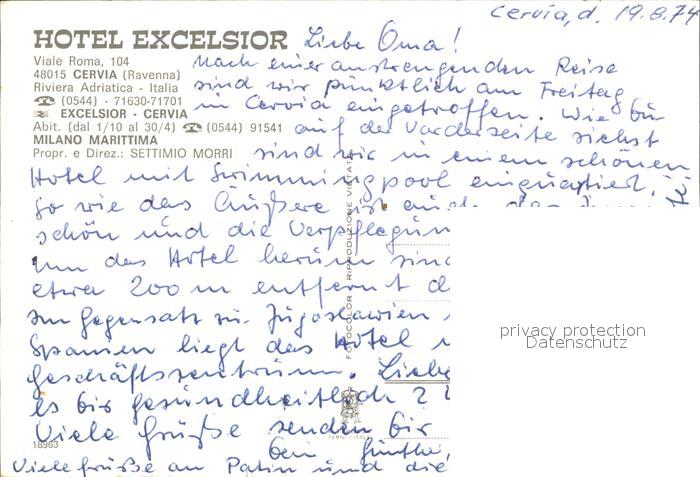 Cervia, d. 19.8.74
HOTEL EXCELSIOR
Liebe Oma!
Viale Roma, 104
48015 CERVIA (Ravenna)
Riviera Adriatica - Italia
☎ (0544) - 71630-71701
EXCELSIOR - CERVIA
Abit. (dal 1/10 al 30/4) ☎ (0544) 91541
MILANO MARITTIMA
Propr. e Direz.: SETTIMIO MORRI
Nach einer anstrengenden Reise
sind wir pünktlich am Freitag
in Cervia eingetroffen. Wie Du
auf der Vorderseite siehst
sind wir in einem schönen
Hotel mit Swimmingpool einquartiert.
So wie das Äußere ist auch das
schön und die Verpflegun
um das Hotel herum sind
etwa 200 m entfernt
Im Gegensatz zu Jugoslawien
Spanien liegt das Hotel
Geschäftszentrum. Liebe
es Dir gesundheitlich
Viele Grüße senden Dir
Dein Günther,
Viele Grüße an Patin und die
18963
FOTOCOLOR - RIPRODUZIONE VIETATA
TERNI - ITALY
privacy protection
Datenschutz